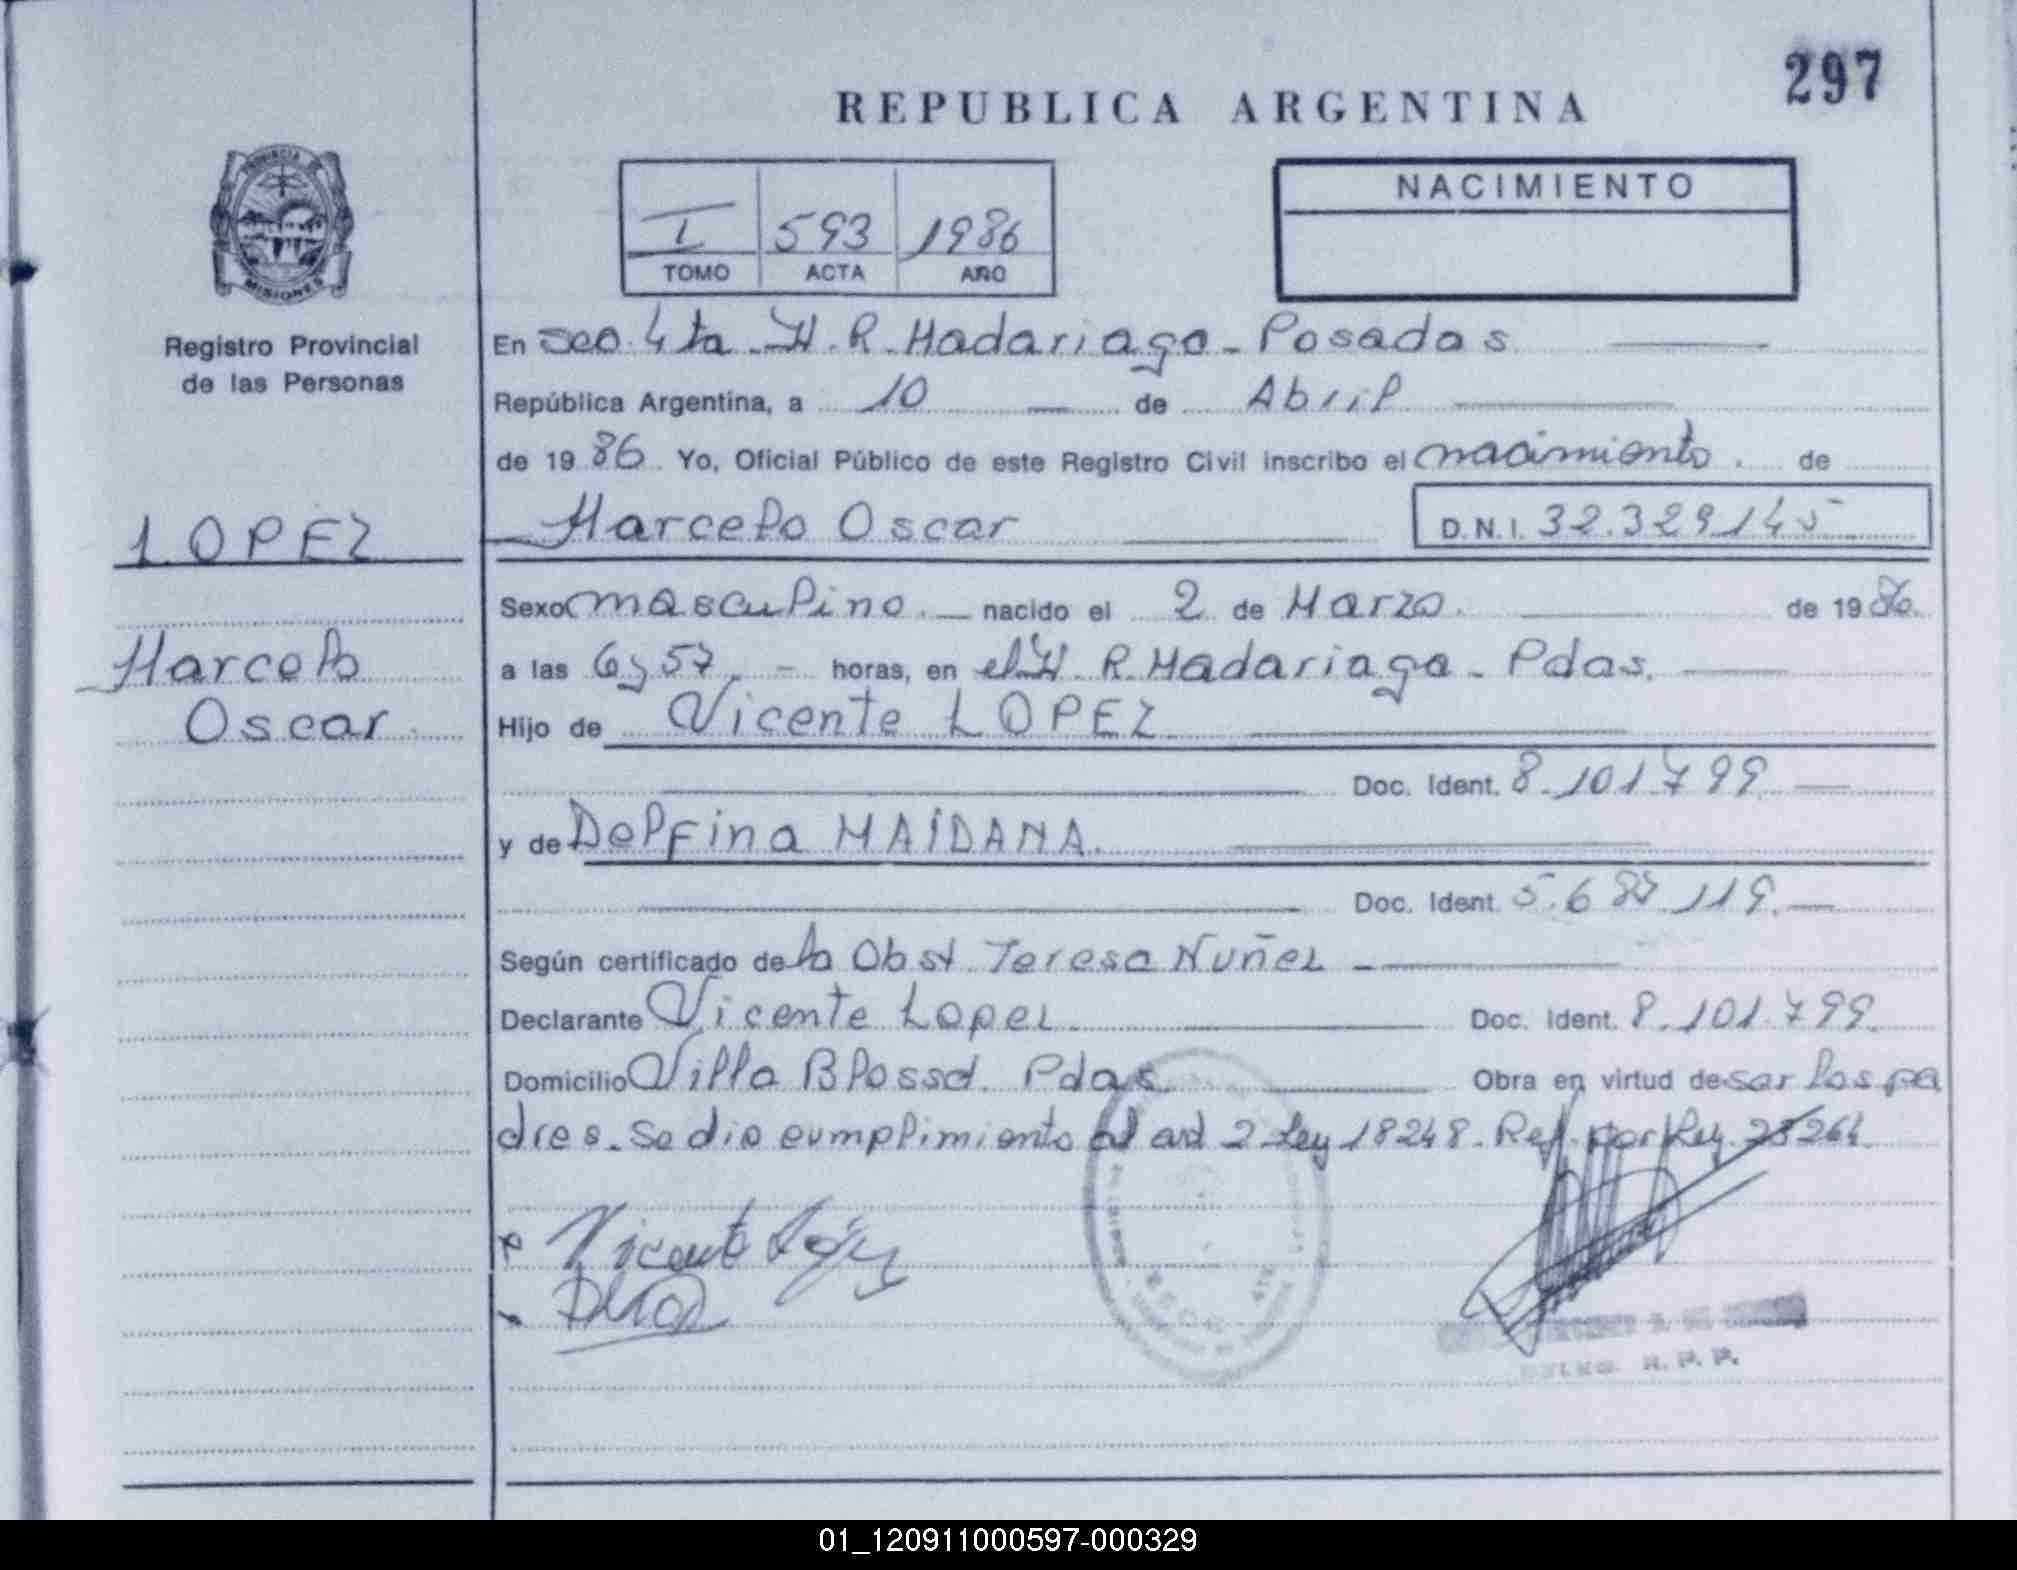 297
REPUBLICA ARGENTINA
PROVINCIA DE
MISIONES
Registro Provincial
de las Personas
I 593 1986
TOMO ACTA AÑO
NACIMIENTO
En Sec. 4ta. H. R. Madariaga - Posadas
República Argentina, a 10 de Abril
de 1986. Yo, Oficial Público de este Registro Civil inscribo el nacimiento. de
LOPEZ
Marcelo Oscar
D.N.I. 32.329.145
Sexo masculino. nacido el 2 de Marzo. de 1986.
Marcelo
Oscar
a las 6 y 57 horas, en el H. R. Madariaga - Pdas.
Hijo de Vicente LOPEZ
Doc. Ident. 8.101.799
y de Delfina MAIDANA.
Doc. Ident. 5.687.119.
Según certificado de la Obst Teresa Nuñez
Declarante Vicente Lopez Doc. Ident. 8.101.799.
Domicilio Villa Blossd. Pdas Obra en virtud de ser los pa
dres. Se dio cumplimiento al art 2 Ley 18248. Ref. por Ley 23264
Vicente López
R. P. P.
01_120911000597-000329